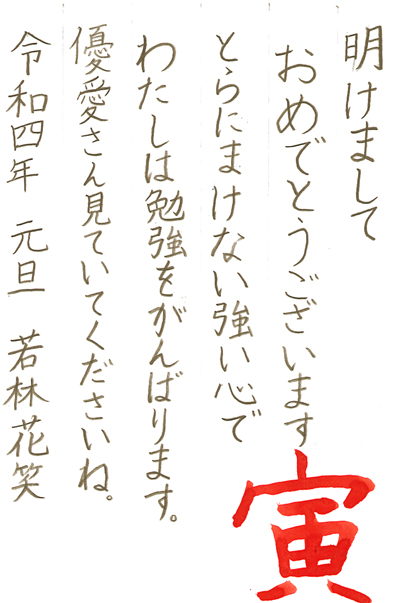 明けまして
おめでとうございます
とらにまけない強い心で
わたしは勉強をがんばります。
優愛さん見ていてくださいね。
令和四年 元旦 若林花笑
寅